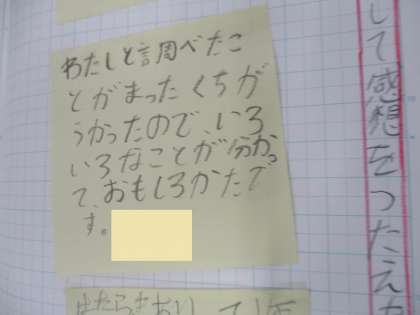 して感想をつたえ
わたしと言周べたこ
とがまったくちが
うかったので、いろ
いろなことが分かっ
て、おもしろかたで
す。